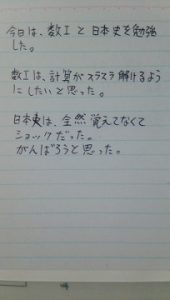 今日は、数Iと日本史を勉強
した。
数Iは、計算がスラスラ解けるよう
にしたいと思った。
日本史は、全然覚えてなくて
ショックだった。
がんばろうと思った。